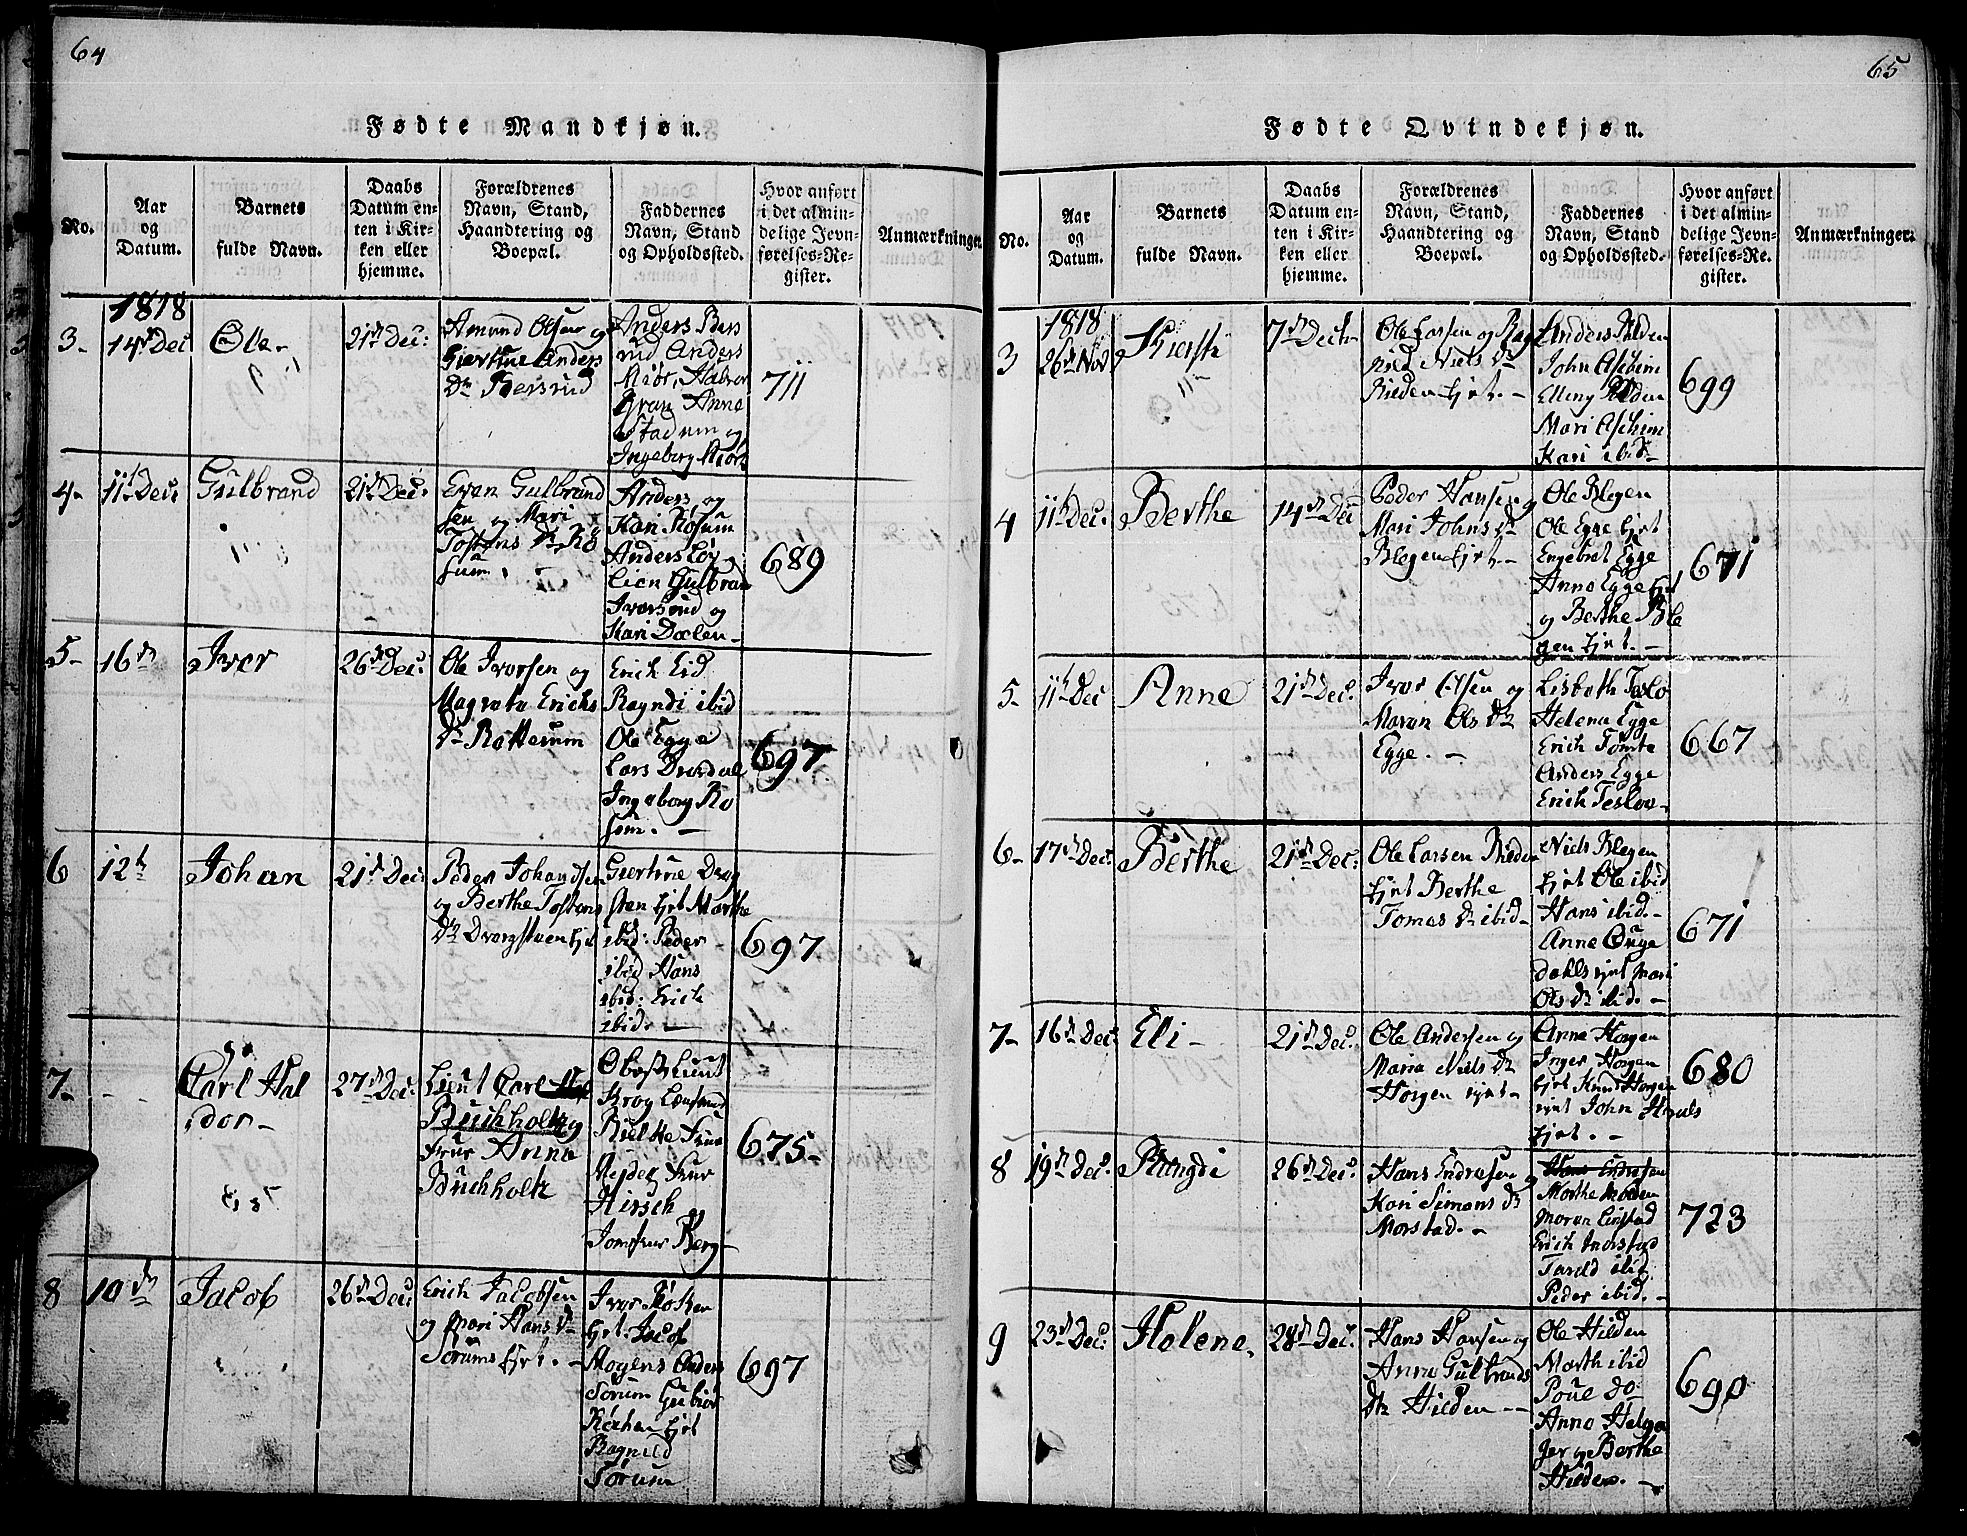 64
Fødte Mandkjøn.
No.
Aar
og
Datum.
Barnets
fulde Navn.
Daabs
Datum en-
ten i Kir-
ken eller
hjemme.
Forældrenes
Navn, Stand,
Haandtering og
Boepæl.
Faddernes
Navn, Stand
og Opholdssted.
Hvor anført
i det almin-
delige Jevn-
førelses-Re-
gister.
Anmærkninger.
1818
3-
14de Dec
Ole-
21de Dec:
Amund Olsen og
Giertine Anders
Dr Bersrud
Anders Bers
rud Anders
Miör, Halvor
Gran Anne
Stadum og
Ingeborg Miör
711
4-
11te Dec:
Gulbrand
21de Dec:
Evan Gulbrand
sen og Mari
Tostens Dr Rö
sum.
Anders og
Kari Røsum
Anders Löv
Lien Gulbran
Iversrud og
Kari Dælen-
689
5-
16de
Iver
26de Dec:
Ole Iversen og
Magreta Erichs
Dr Rotterum
Erich Eid
Ragndi ibid
Ole Egge
Lars
Ingeborg Ro
sum. -
697
6
12te
Johan
21de Dec:
Peder Johandsen
og Berthe Tostens
Dr Drægsteen Ejet
Giertine Dræg
sten Ejet Marthe
ibid: Peder
ibid Hans
ibid: Erich
ibid. -
697
7-
Carl Hal
dor-
27de Dec:
Lieut Carl
Buchholtz og
Frue Anna
Buchholtz
Oberst Lieut
Krog
Frue
Frue
Hirsch og
Jomfrue Berg-
675-
8
10de
Jacob
26de Dec:
Erich Jacobsen
og Mari Hans Dr
Sorums Ejet. -
Iver
Ejet. Jacob
Mogens Anders
Sorum
Ejet
Ragnild
Sorum
697
65
Fødte Qvindekjøn.
No.
Aar
og
Datum.
Barnets
fulde Navn.
Daabs
Datum en-
ten i Kir-
ken eller
hjemme.
Forældrenes
Navn, Stand,
Haandtering og
Boepæl.
Faddernes
Navn, Stand
og Opholdssted.
Hvor anført
i det almin-
delige Jevn-
førelses-Re-
gister.
Anmærkninger.
1818
3
26de Nov
Kiersti
7de Decbr
Ole Larsen og Rag
nild Niels Dr
Rilden Ejet. -
Anders Rilden
John Aschim
Elling Rilden
Mari Aschim
Kari ibid-
699
4
11te Dec:
Berthe
14de Dec
Peder Hansen og
Mari Johns Dr
Blegen Ejet. -
Ole Blegen
Ole Egge Ejet
Engebret Egge
Anne Egge Ejet
og Berthe Ble
gen Ejet. -
671
5-
11te Dec
Anne
21de Dec:
Iver Olsen og
Maren Ols Dr
Egge. -
Lisbeth Teslo
Helena Egge
Erich Tomte
Anders Egge
Erich Teslo-
667
6-
17de Dec:
Berthe
21de Dec:
Ole Larsen
Ejet Berthe
Tomas Dr ibid-
Niels Blegen
Ejet Ole ibid
Hans ibid.-
Anne
dahls Ejet Mari
Ols Dr ibid. -
671
7-
16de Dec:
Eli -
21de Dec:
Ole Andersen og
Maria Niels Dr
Horgen Ejet-
Anne Horgen
Inger Horgen
Ejet Knud Horgen
Ejet John
Ejet. -
680
8
19de Dec:
Rangdi
26de Dec:
Hans Endresen og
Kari Simens Dr
Morstad. -
Hans Endresen
Marthe Moen
Maren
Erich Morstad
ibid
Peder ibid. -
723
9
23de Dec:
Helene.
28de Dec:
Hans Hansen og
Anne Gulbrands
Dr Hilden -
Ole Hilden
Marth ibid
Poul do
Anne Helga
ger og Berthe
Hilden. -
690